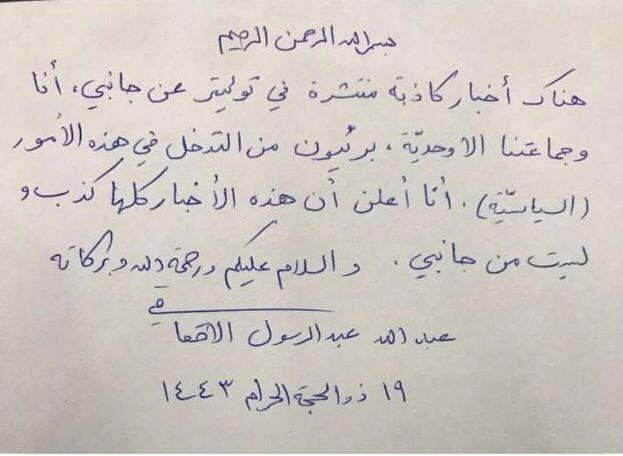 بسم الله الرحمن الرحيم
هناك أخبار كاذبة منتشرة في توئيتر عن جانبي، أنا
وجماعتنا الاوحديّة، برئيون من التدخل في هذه الأمور
(السياسيّة). أنا أعلن أن هذه الأخبار كلها كذب و
ليست من جانبي. والسلام عليكم ورحمة الله وبركاته
عبد الله عبد الرسول الاحقاقي
١٩ ذو الحجة الحرام ١٤٤٣